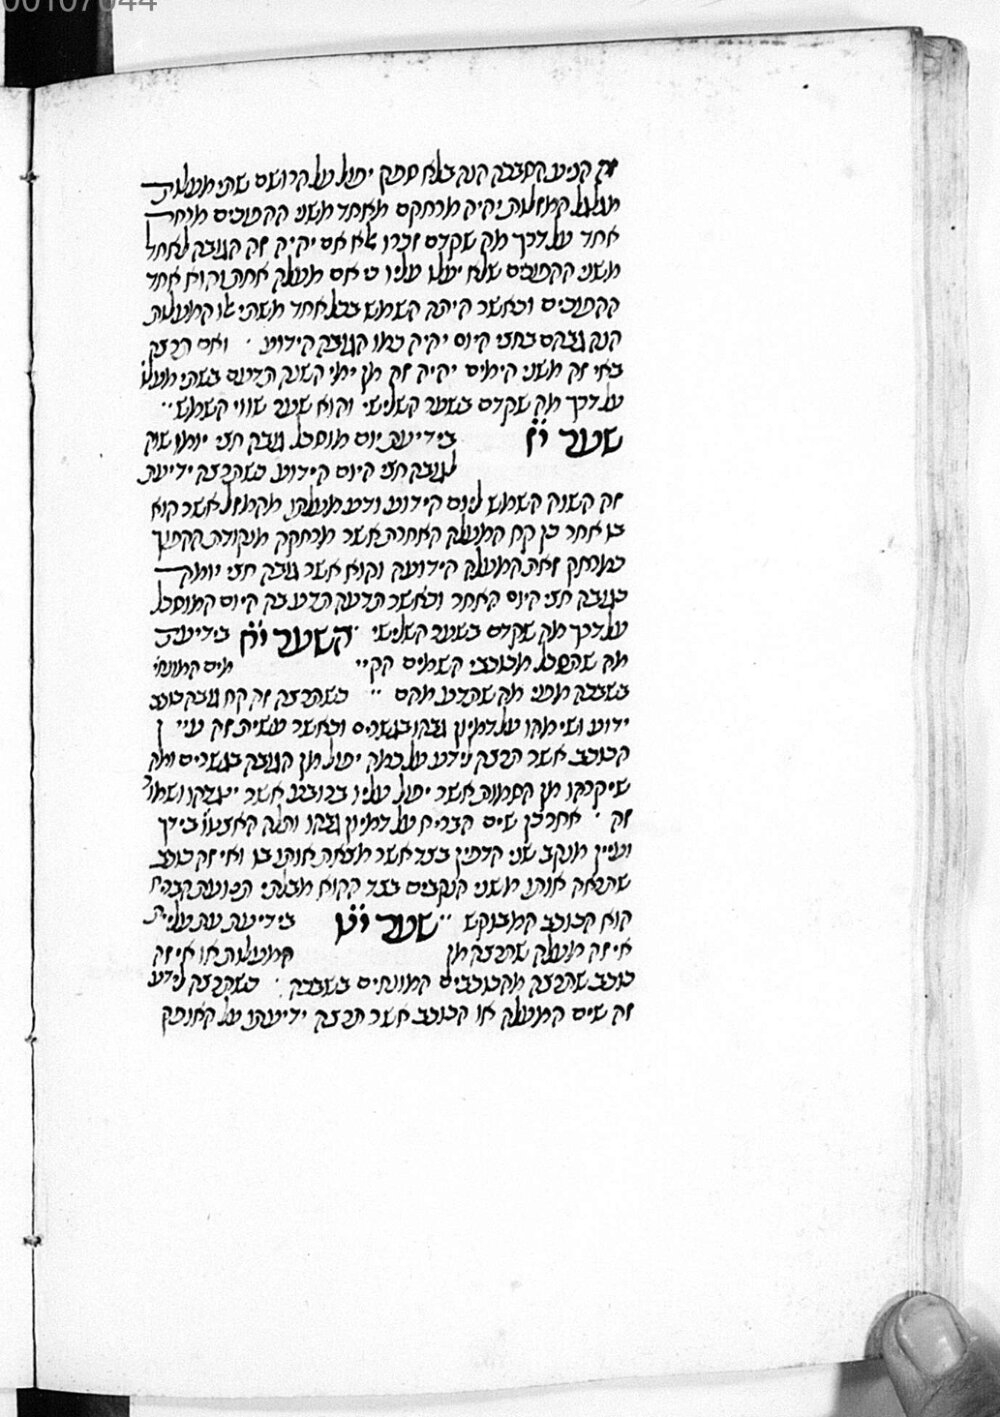 00107644
זה הניע הסבכה הנה בלא ספק יפול על הרושם שתי מעלות
מגלגל המזלות יהיה מרחקם מאחד משני ההפוכים מרחק
אחד על דרך מה שקדם זכרו אלא אם יהיה זה הגובה לאחד
משני ההפוכים שלא יעלו עליו כי אם מעלה אחת והוא אחד
ההפוכים וכאשר היתה השמש בכל אחד משתי אלו המעלות
הנה גבהם בחצי היום יהיה כמו הגובה הידוע ואם תרצה
באי זה משני הימים יהיה זה מן ימי השנה תדעם בשתי מעלו
על דרך מה שקדם בשער השלישי והוא שער שווי השמש
שער י"ז בידיעת יום מוסכל גובה חצי יומו שוה
לגובה חצי היום הידוע כשתרצה ידיעת
זה השוה השמש ליום הידוע ודע מעלתו מהמזל אשר הוא
בו אחר כן קח המעלה האחרת אשר מרחקה מנקודת ההפוך
כמרחק זאת המעלה הידועה והוא אשר גובה חצי יומה
כגובה חצי היום האחר וכאשר תדעה תדע בה היום המוסכל
על דרך מה שקדם בשער השלישי השער י"ח בידיעת
מה שהסכל מכוכבי השמים הקיי מים המונחי
בשבכה מפני מה שתדע מהם כשתרצה זה קח גובה כוכב
ידוע ושימהו על דמיון גבהו בגשרים וכאשר עשית זה עיין
הכוכב אשר תרצה לידע על כמה יפול מן הגובה בגשרים ומה
שיקרהו מן הפאות אשר יפול עליו ברובע אשר יגבהו ושמור
זה אחר כן שים הבריח על דמיון גבהו ותלה האצט' בידך
ועיין מנקב שני הדפין בצד אשר מצאת אותו בו ואי זה כוכב
שתראה אותו משני הנקבים בצד ההוא מבלתי תנועת הבריח
הוא הכוכב המבוקש שער י"ט בידיעת עת עליית
אי זה מעלה שתרצה מן המעלות או אי זה
כוכב שתרצה מהכוכבים המונחים בשבכה כשתרצה לידע
זה שים המעלה או הכוכב אשר תרצה ידיעתו על האופק